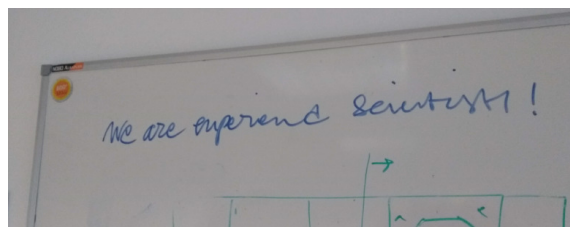 We are experienced Scientists!